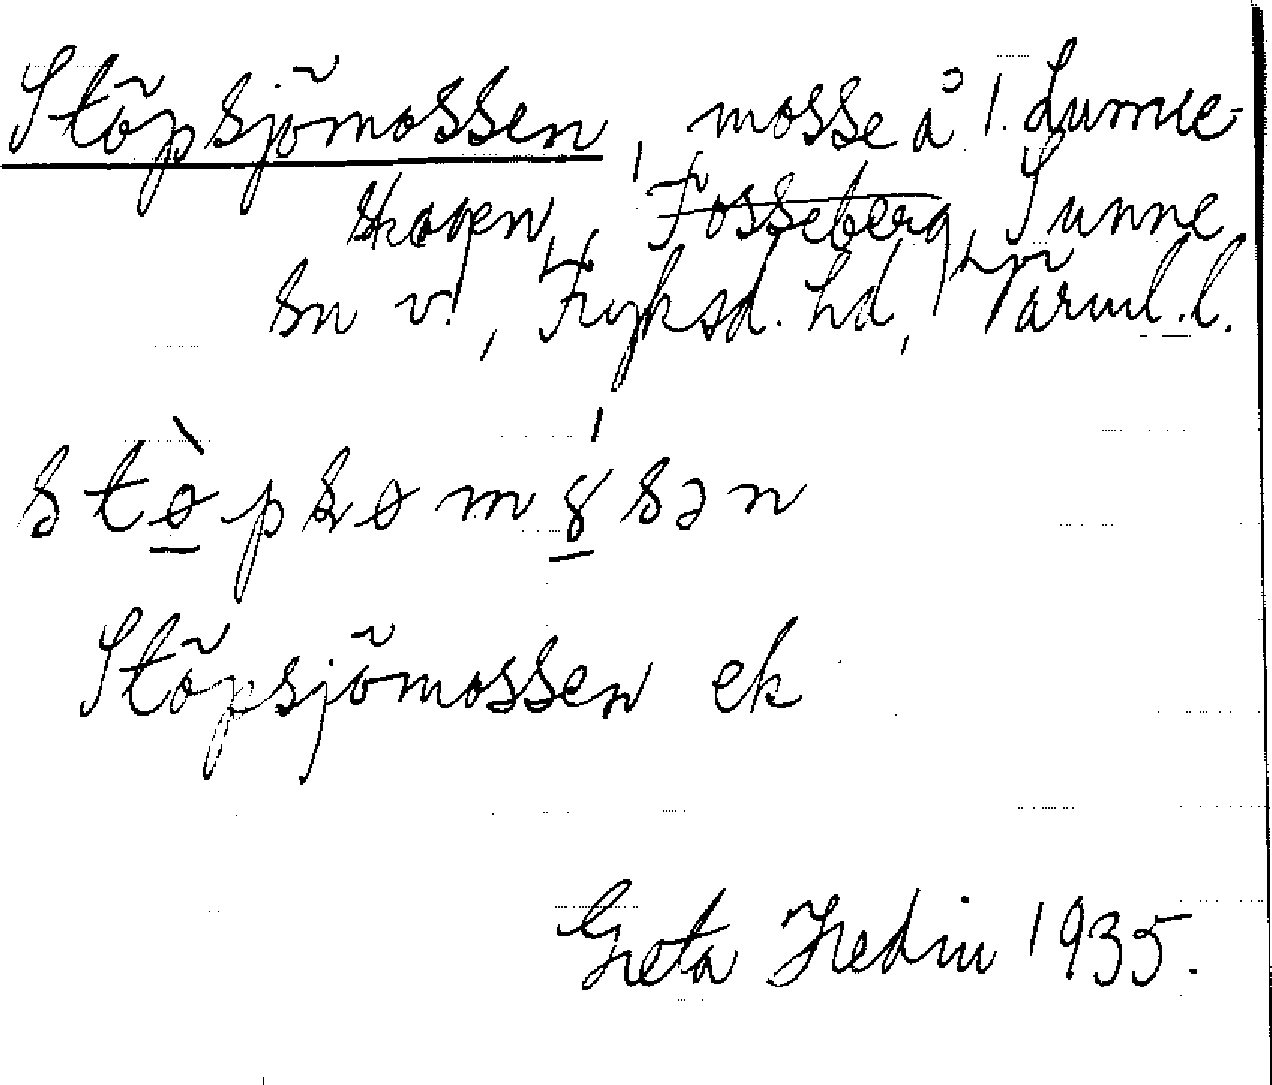 Stöpsjömossen, mosse å 1. Lurme-
skogen, Fosseberg, Sunne
sn v., Fryksd. hd, Värml. l.
stø̀psømɣ́sən
Stöpsjömossen ek
Greta Hedin 1935.